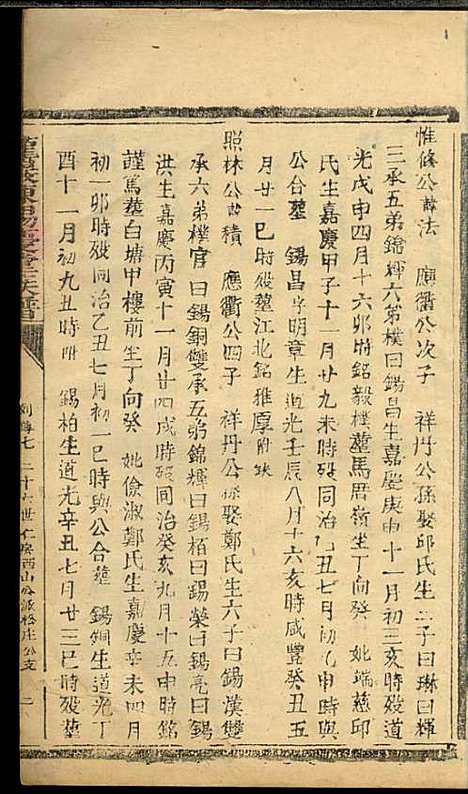 惟修公諱法 應衢公次子 祥丹公孫娶邱氏生二子曰琳曰輝
三承五弟錦輝六弟樸曰錫昌生嘉慶庚申十一月初三亥時歿道
光戊申四月十六卯時銘毅樸塟馬厝嶺坐丁向癸 妣端慈邱
氏生嘉慶甲子十一月廿九未時歿同治 丑七月初九申時與
公合塟 錫昌字明章生道光壬辰八月十六亥時咸豐癸丑五
月廿一巳時歿塟江北銘雅厚附
照林公諱積 應衢公四子 祥丹公孫娶鄭氏生六子曰錫漢雙
承六弟樸官曰錫銅雙承五弟錦輝曰錫栢曰錫榮曰錫亮曰錫
洪生嘉慶丙寅十一月廿四戌時歿同治癸亥九月十五申時銘
謹篤塟白塘甲樓前坐丁向癸 妣儉淑鄭氏生嘉慶辛未四月
初一卯時歿同治乙丑七月初一巳時與公合塟 錫銅生道光丁
酉十一月初九丑時附 錫柏生道光辛丑七月廿三巳時歿塟
列傳七 二十六世仁房西山 派 庄公支 二